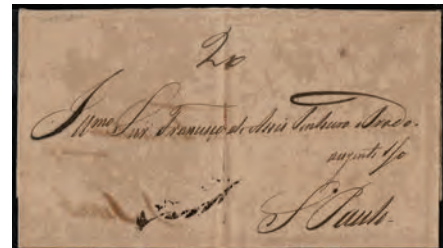 20
Illmo Snr. Francisco de Assis Pinheiro e Prado.
S Paulo.